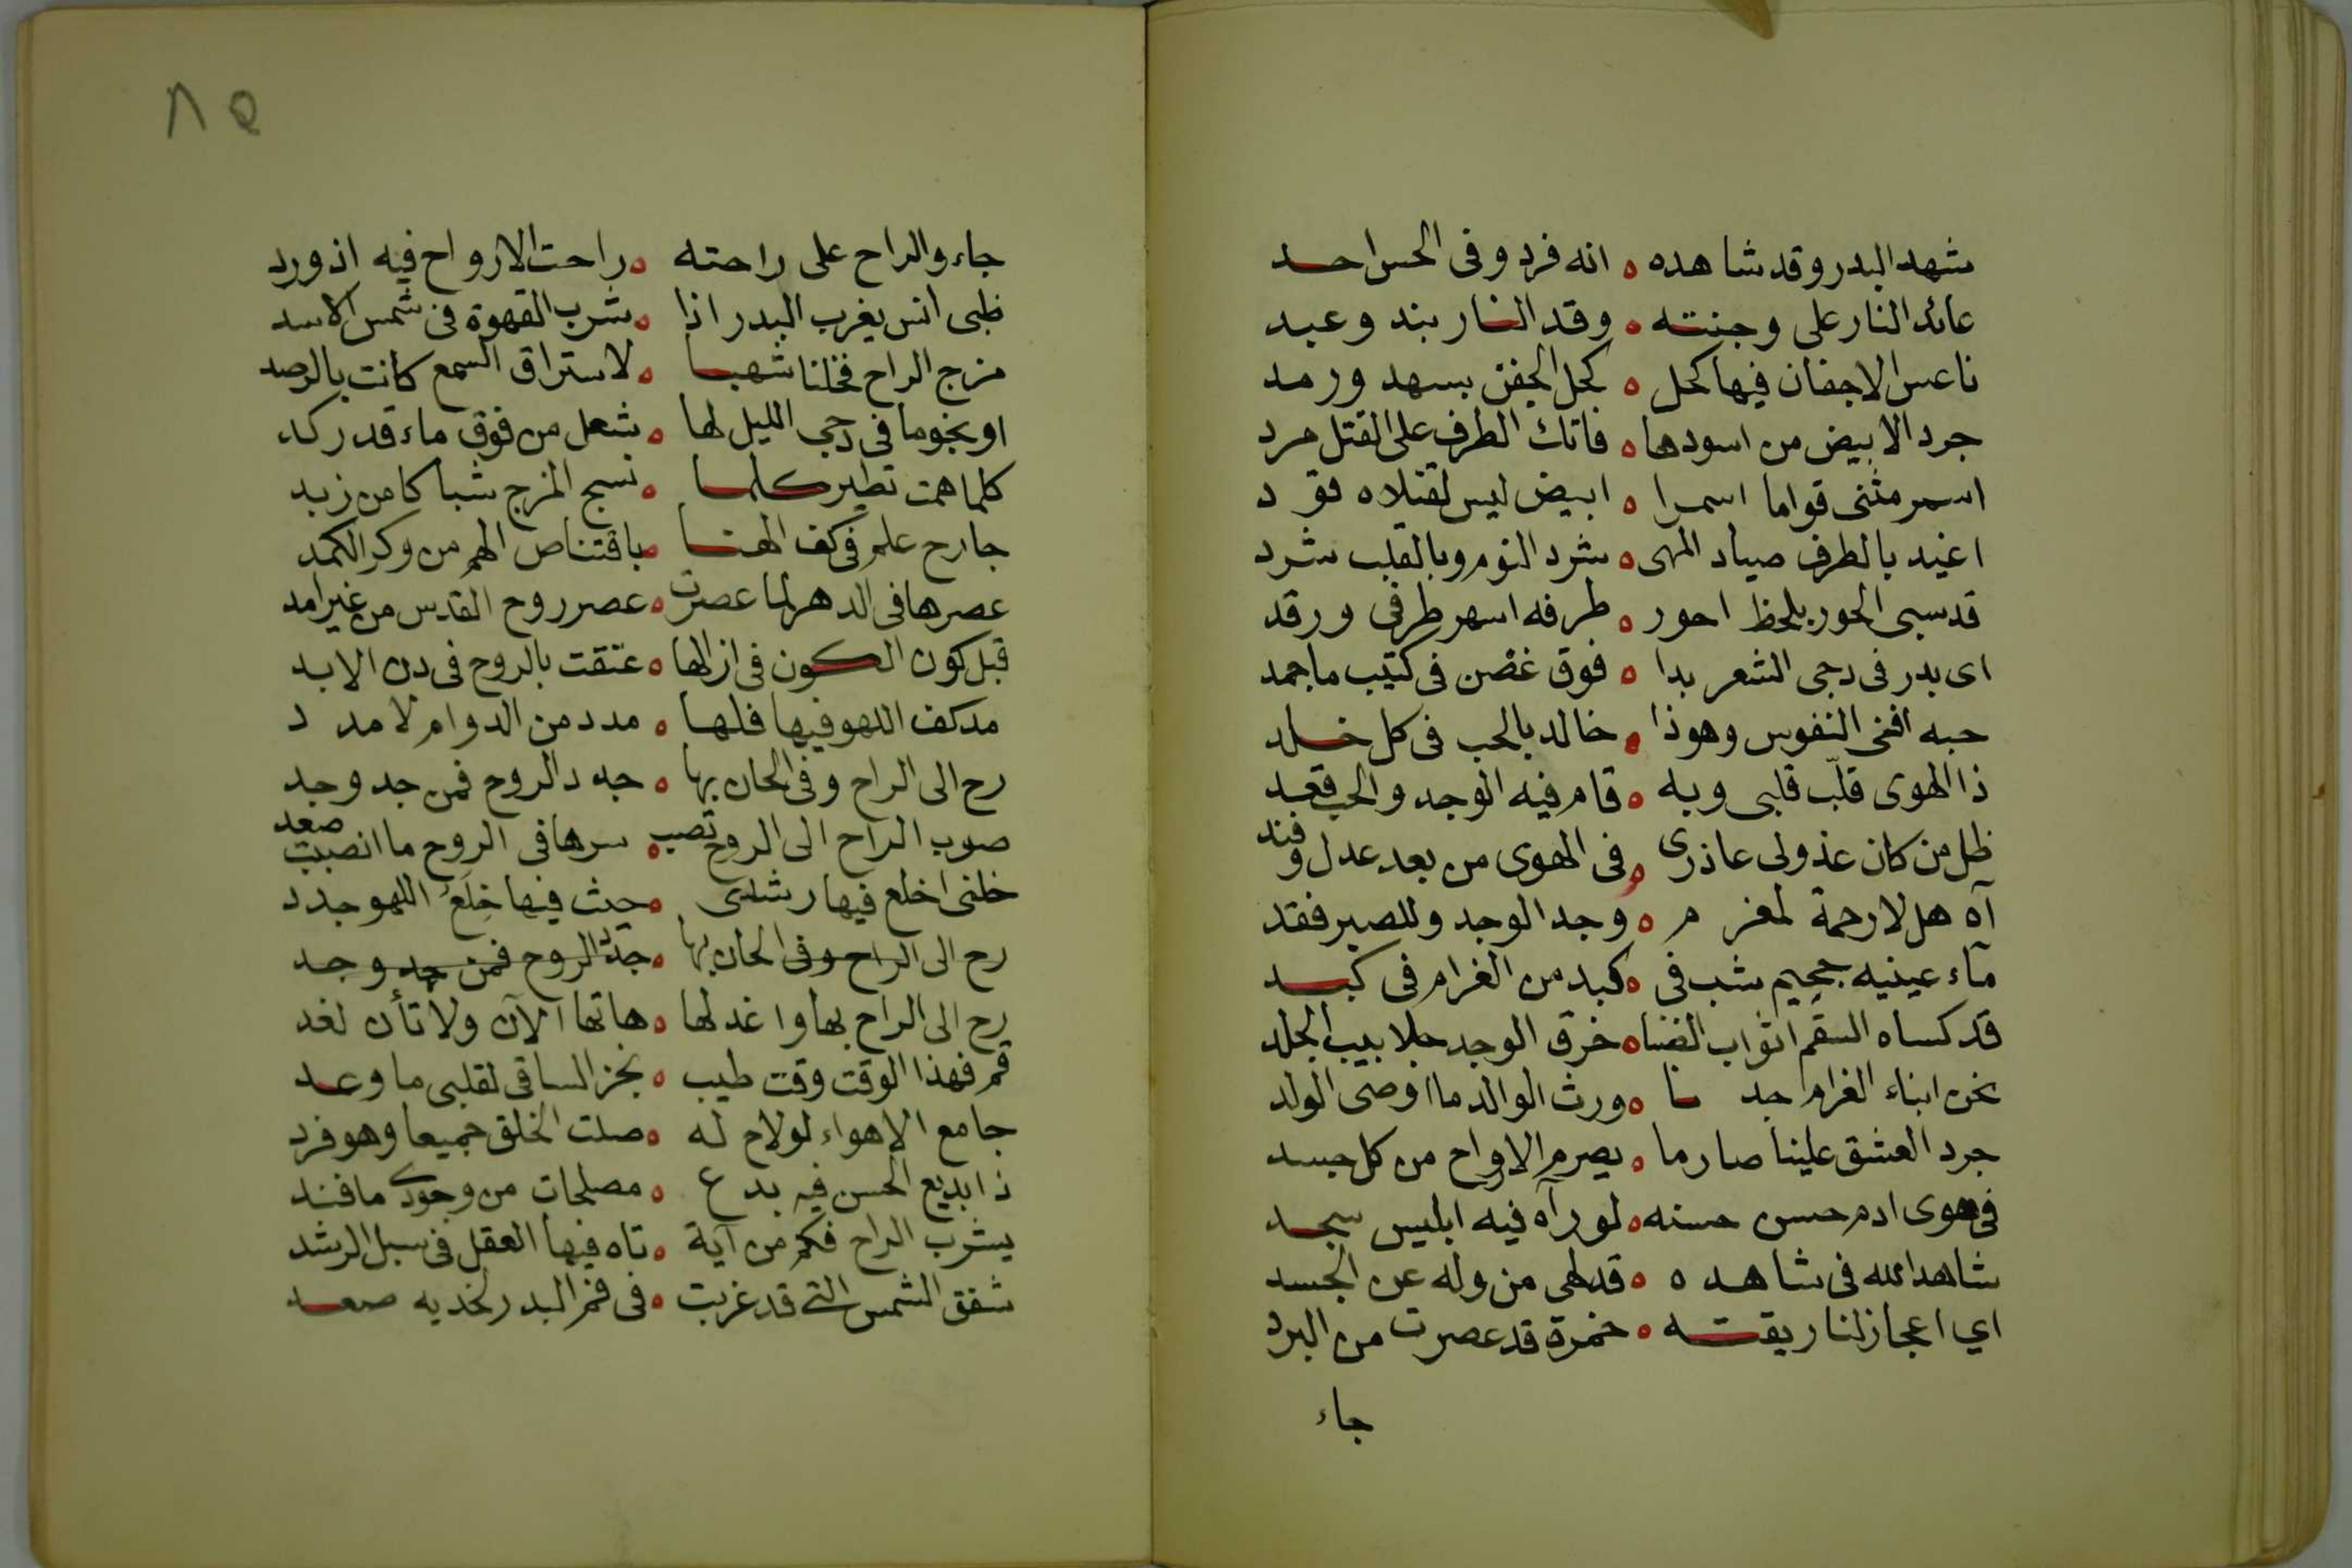 شهد البدر وقد شاهده ه انه فرد وفى الحسن احد
عائد النار على وجنته ه وقد النار بند وعبد
ناعس الاجفان فيها كحل ه كحل الجفن بسهد ورمد
جرد الابيض من اسودها ه فاتك الطرف على القتل مرد
اسمر مثنى قواما اسمرا ه ابيض ليس لقتلاه قود
اغيد بالطرف صياد المهى ه شرد النوم وبالقلب شرد
قد سبى الحور بلحظ احور ه طرفه اسهر طرفى ورقد
اى بدر فى دجى الشعر بدا ه فوق غصن فى كثيب ما جمد
حبه افنى النفوس وهو ذا ه خالد بالحب فى كل خلد
ذا الهوى قلّب قلبى وبه ه قام فيه الوجد والحب قعد
ظل من كان عذولى عاذرى ه فى الهوى من بعد عدل وفند
آه هل لا رحمة لمغرم ه وجد الوجد وللصبر فقد
مآء عينيه جحيم شب فى ه كبد من الغرام فى كبد
قد كساه السقم اثواب الضنا ه خرق الوجد جلابيب الجلد
نحن ابناء الغرام جدنا ه ورث الوالد ما اوصى الولد
جرد العشق علينا صارما ه يصرم الارواح من كل جسد
فى هوى ادم حسن حسنه ه لو رآه فيه ابليس سجد
شاهد الله فى شاهده ه قد لهى من وله عن الجسد
اي اعجاز لنا ريقته ه خمرة قد عصرت من البرد
جاء
٨٥
جاء والراح على راحته ه راحت الارواح فيه اذ ورد
ظبى انس يغرب البدر اذا ه شرب القهوة فى شمس الاسد
مزج الراح فخلنا شهبا ه لاستراق السمع كانت بالرصد
او نجوما فى دجى الليل لها ه شعل من فوق ماء قد ركد
كلما همت تطير كلما ه نسج المزج شباكا من زبد
جارح علم فى كف الهنا ه باقتناص الهم من وكر الكمد
عصرها فى الدهر لما عصرت ه عصر روح القدس من غير امد
قبل كون الكون فى ازالها ه عتقت بالروح فى دن الابد
مد كف اللهو فيها فلها ه مدد من الدوام لا مدد
رح الى الراح وفى الحان بها ه جد د الروح فمن جد وجد
صوب الراح الى الروح تصب ه سرها فى الروح ما انصبت صعد
خلنى اخلع فيها رشدى ه حيث فيها خِلَعُ اللهو جدد
رح الى الراح وفى الحان بها ه جدد الروح فمن جد وجد
رح الى الراح بها واغد لها ه هاتها الآن ولا تأن لغد
قم فهذا الوقت وقت طيب ه نجز الساقى لقلبى ما وعد
جامع الاهواء لو لاح له ه صلت الخلق جميعا وهو فرد
ذا بديع الحسن فيه بدع ه مصلحات من وجودى ما فند
يشرب الراح فكم من آية ه تاه فيها العقل فى سبل الرشد
شفق الشمس التى قد غربت ه فى فم البدر لخديه صعد